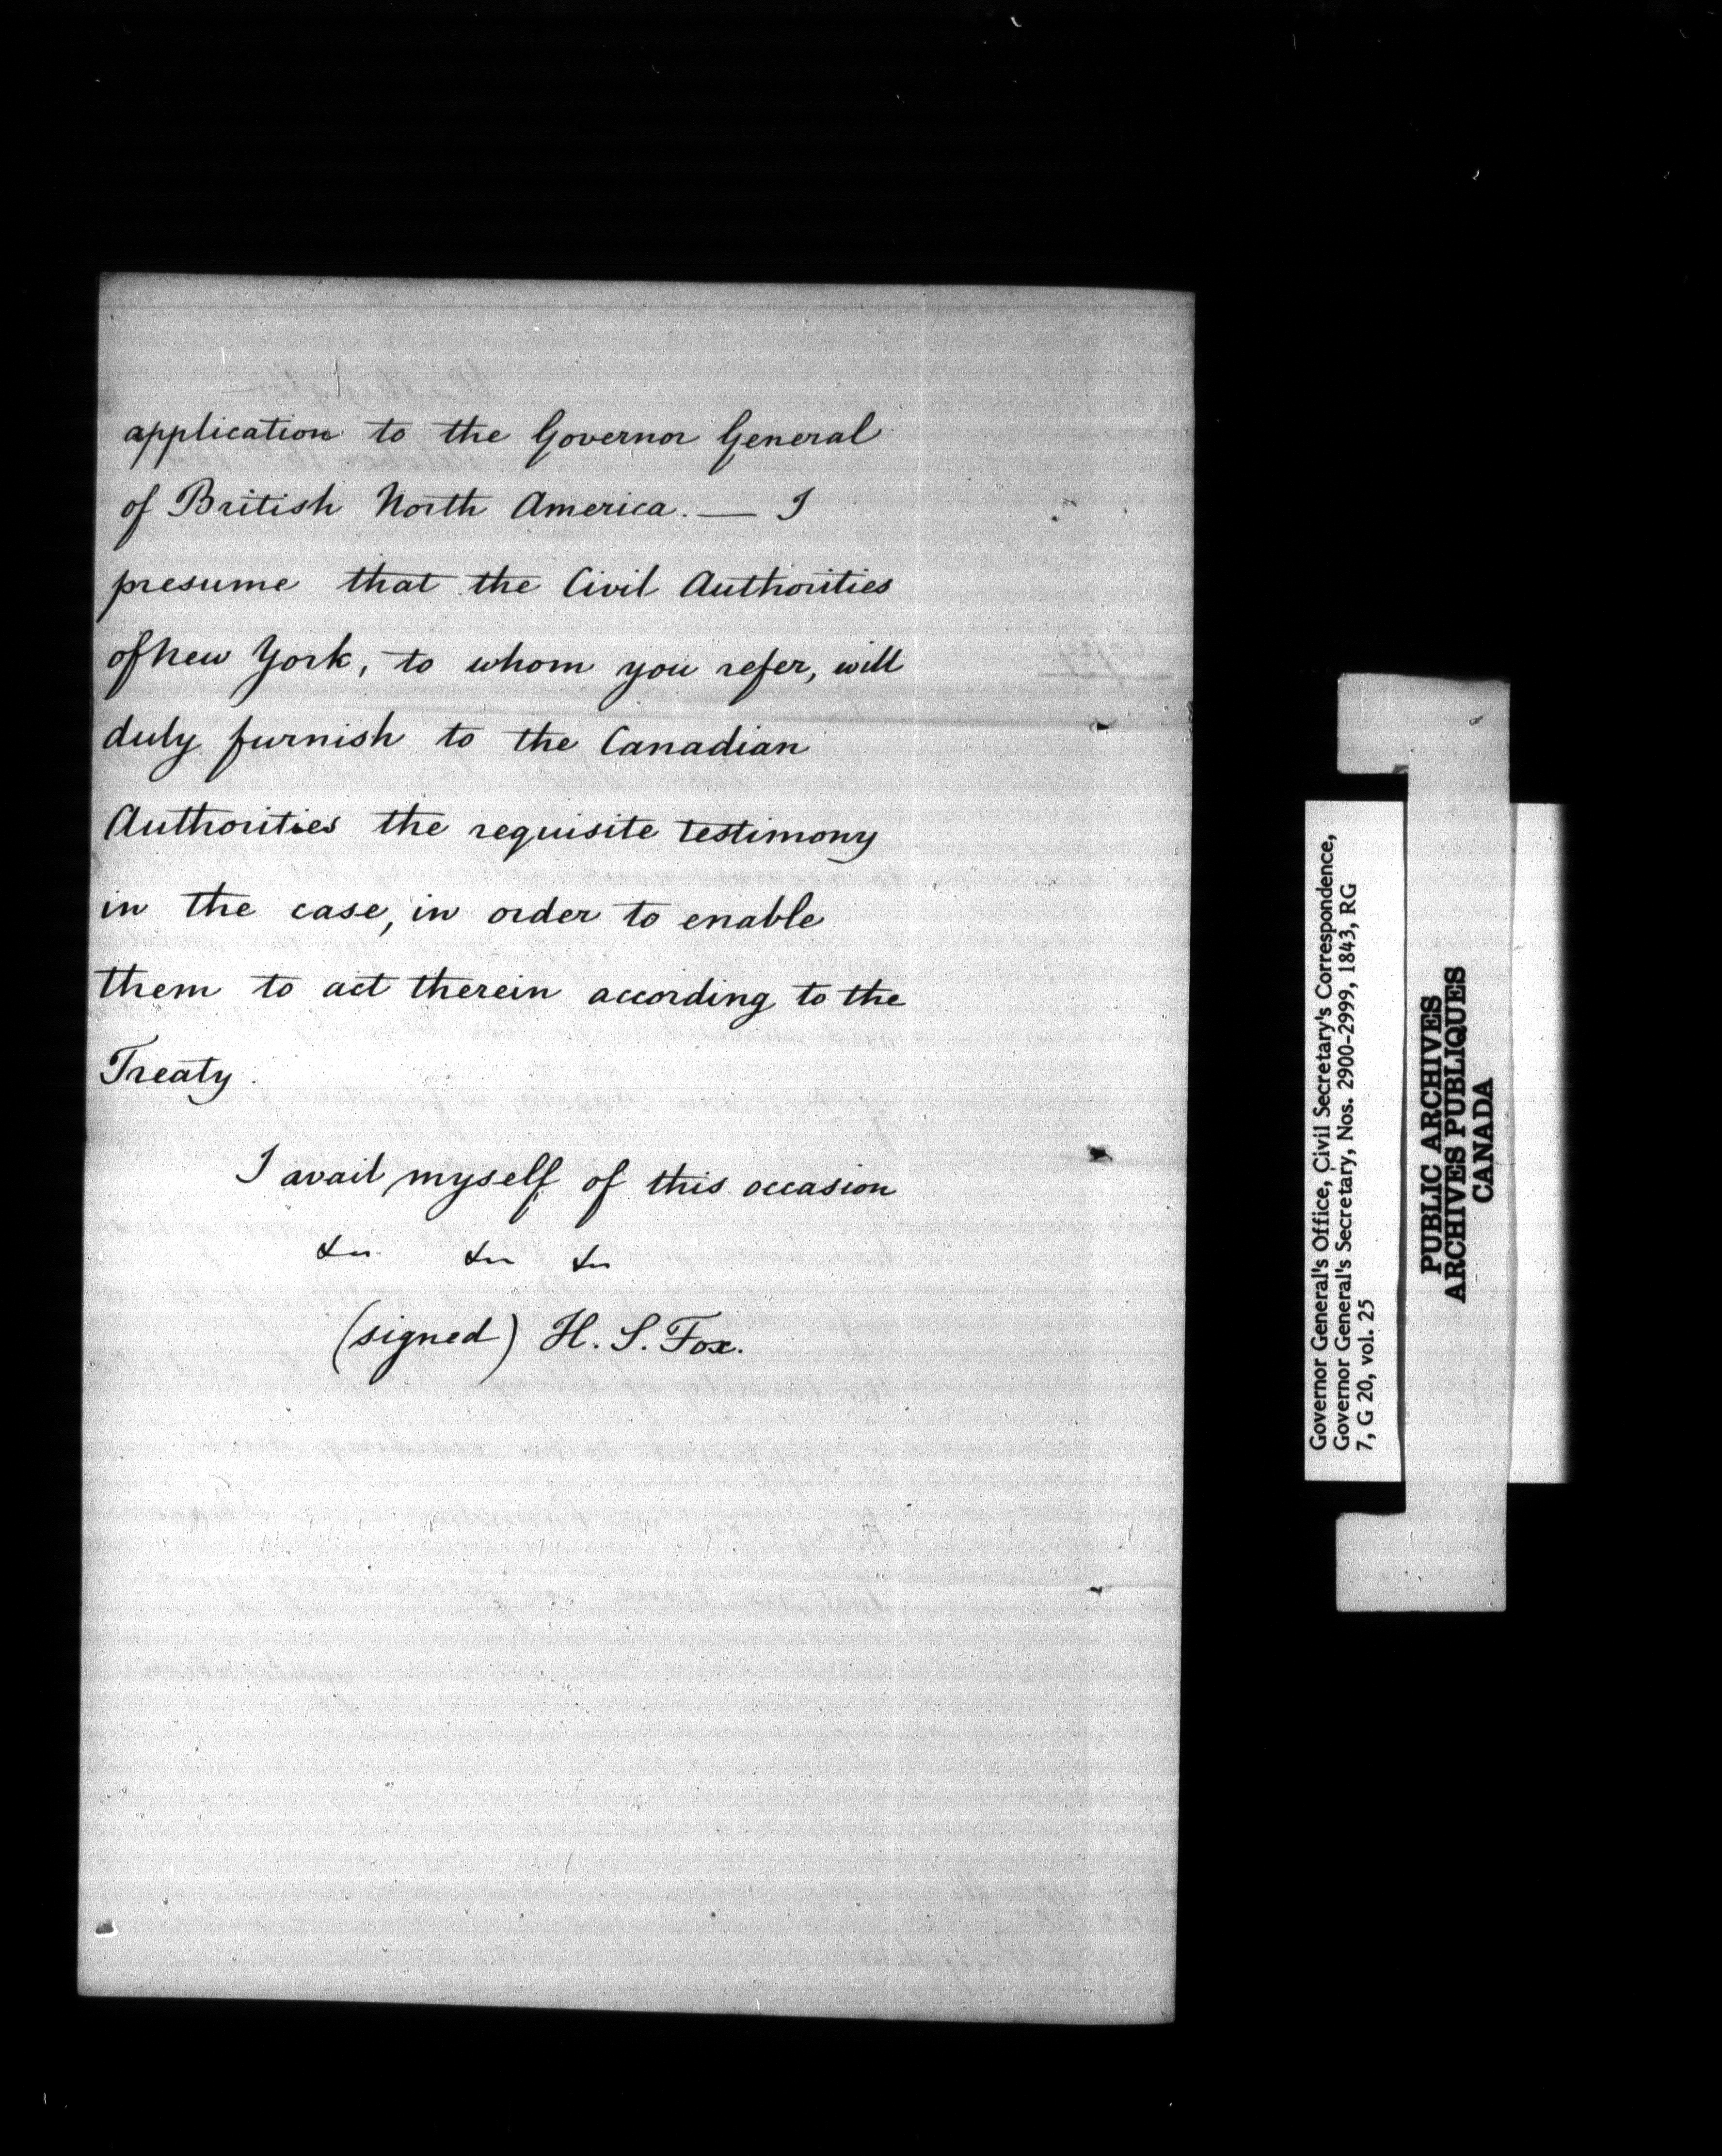 application to the Governor General
of British North America. — I
presume that the Civil Authorities
of New York, to whom you refer, will
duly furnish to the Canadian
Authorities the requisite testimony
in the case, in order to enable
them to act therein according to the
Treaty.
I avail myself of this occasion
&c &c &c
(signed) H. S. Fox.
Governor General's Office, Civil Secretary's Correspondence,
Governor General's Secretary, Nos. 2900-2999, 1843, RG
7, G 20, vol. 25
PUBLIC ARCHIVES
ARCHIVES PUBLIQUES
CANADA